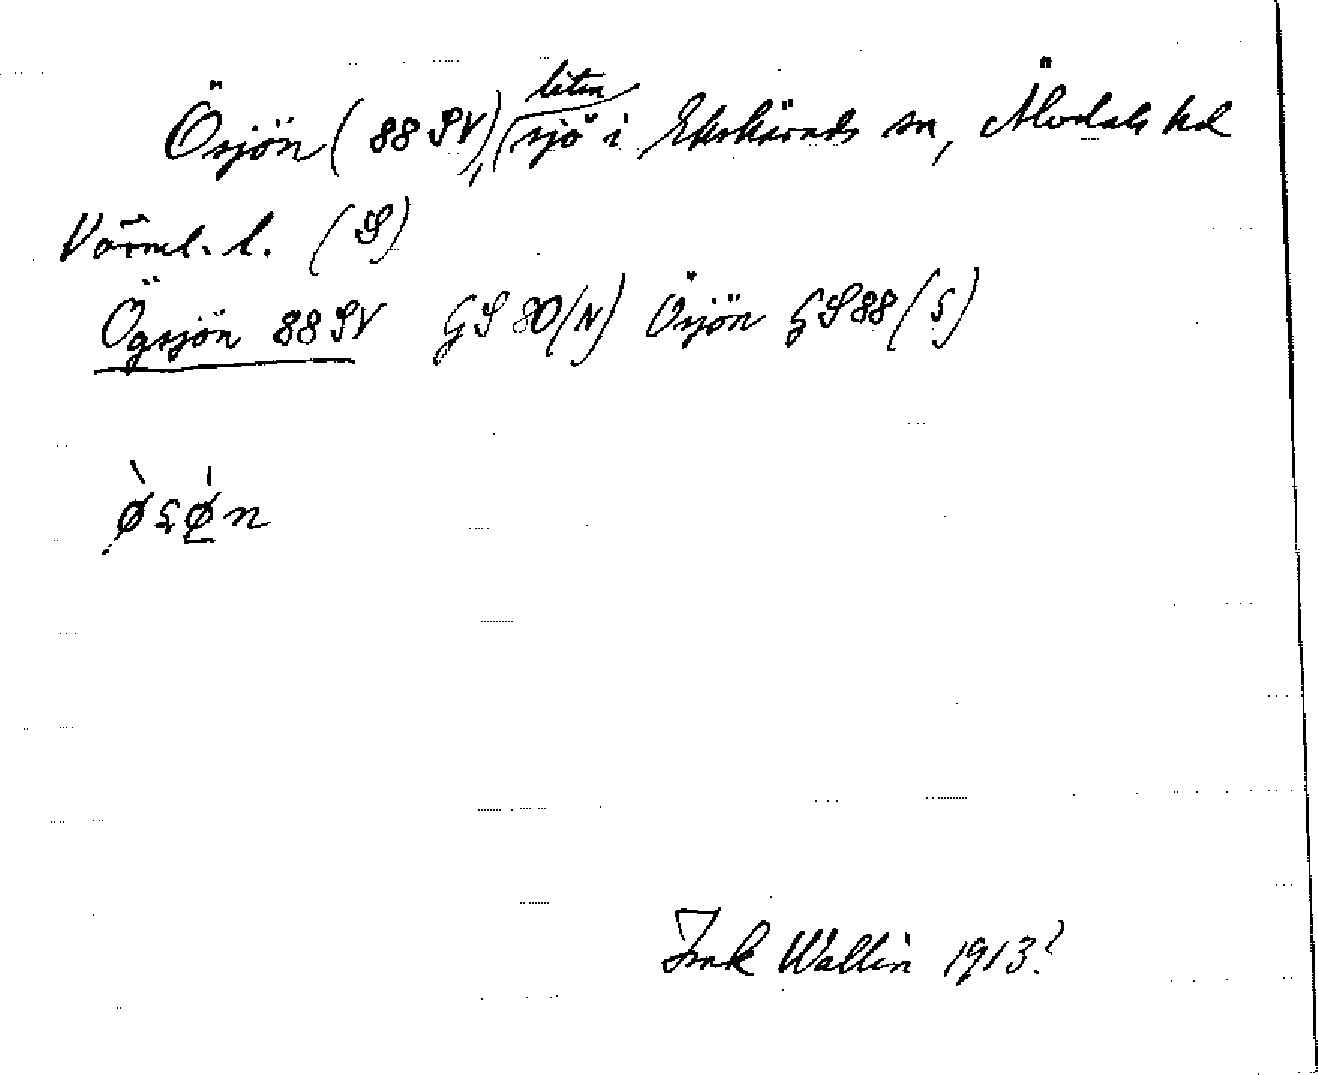 Ösjön (88 SV), liten sjö i Ekshärads sn, Älvdals hd
Värml. l. (S)
Ögsjön 88 SV GS 80 (N) Ösjön GS 88 (S)
ø̀sǿ̲n
Wallin 1913?